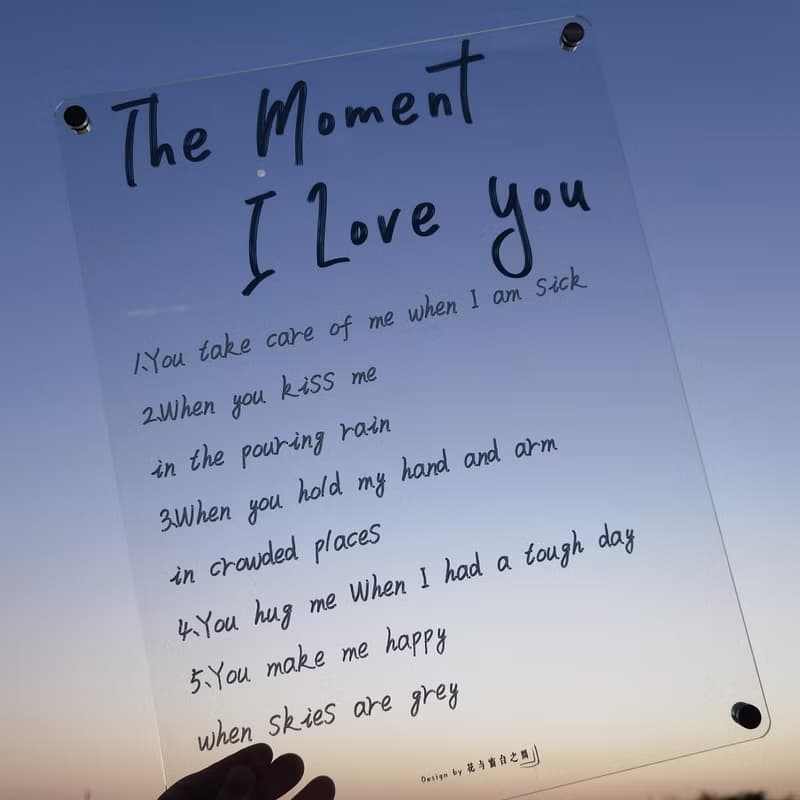 The Moment
I Love You
1.You take care of me when I am sick
2.When you kiss me
in the pouring rain
3.When you hold my hand and arm
in crowded places
4.You hug me When I had a tough day
5.You make me happy
when skies are grey
Design by 花与窗台之間